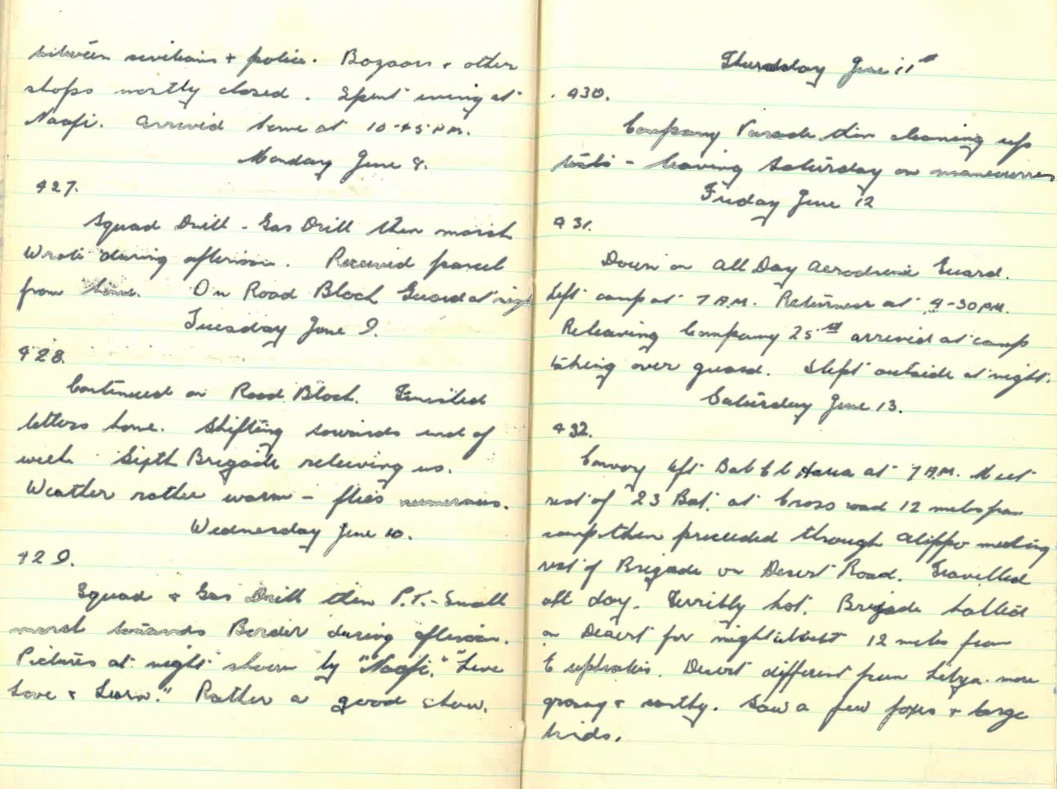 between civilians + police. Bazaars + other
shops mostly closed. Spent evening at
Naafi. Arrived home at 10-45 P.M.
Monday June 8.
427.
Squad Drill - Gas Drill then march
Wrote during afternoon. Received parcel
from home. On Road Block Guard at night
Tuesday June 9.
428.
Continued on Road Block. Finished
letters home. Shifting towards end of
week Sixth Brigade releiving us.
Weather rather warm - flies numerous.
Wednesday June 10.
429.
Squad + Gas Drill then P.T. - Small
march towards Border during afternoon.
Pictures at night shown by "Naafi." "Live
Love + Learn." Rather a good show.
Thursday June 11th
430.
Company Parade then cleaning up
tents - leaving Saturday on manoeuvres
Friday June 12
431.
Down on All Day Aerodrome Guard.
Left camp at 7 A.M. Returned at 4-30 P.M.
Releaving Company 25th arrived at camp
taking over guard. Slept outside at night.
Saturday June 13.
432.
Convoy left Bab El Haua at 7 A.M. Meet
rest of 23 Bat. at Cross road 12 miles from
camp then preceeded through Aleppo meeting
rest of Brigade on Desert Road. Travelled
all day. Terribly hot. Brigade halted
on Desert for night about 12 miles from
Euphrates. Desert different from Libya. more
grassy + earthy. Saw a few foxes + large
birds.